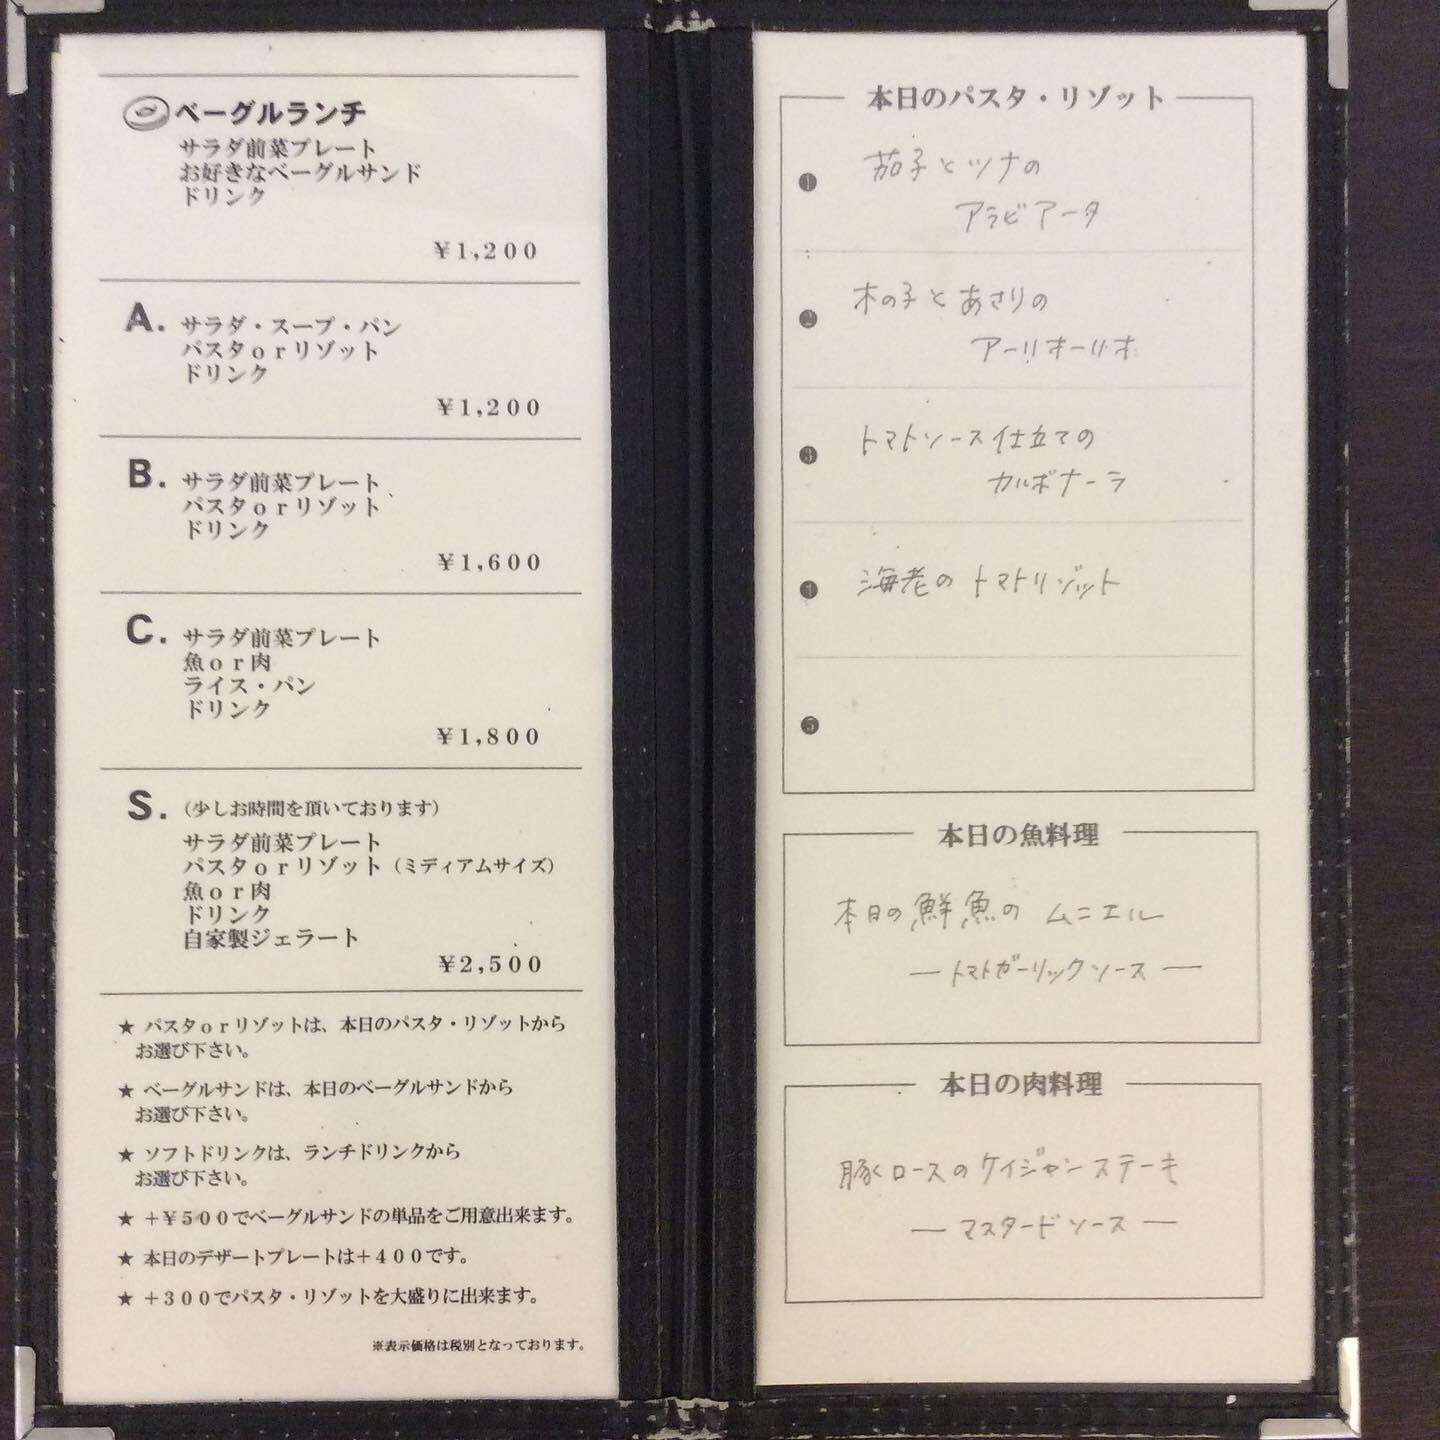 ベーグルランチ
サラダ前菜プレート
お好きなベーグルサンド
ドリンク
￥1,200
A. サラダ・スープ・パン
パスタorリゾット
ドリンク
￥1,200
B. サラダ前菜プレート
パスタorリゾット
ドリンク
￥1,600
C. サラダ前菜プレート
魚or肉
ライス・パン
ドリンク
￥1,800
S. (少しお時間を頂いております)
サラダ前菜プレート
パスタorリゾット (ミディアムサイズ)
魚or肉
ドリンク
自家製ジェラート
￥2,500
★ パスタorリゾットは、本日のパスタ・リゾットから
お選び下さい。
★ ベーグルサンドは、本日のベーグルサンドから
お選び下さい。
★ ソフトドリンクは、ランチドリンクから
お選び下さい。
★ +￥500でベーグルサンドの単品をご用意出来ます。
★ 本日のデザートプレートは+400です。
★ +300でパスタ・リゾットを大盛りに出来ます。
※表示価格は税別となっております。
本日のパスタ・リゾット
❶ 茄子とツナの
アラビアータ
❷ 木の子とあさりの
アーリオーリオ
❸ トマトソース仕立ての
カルボナーラ
❹ 海老のトマトリゾット
❺
本日の魚料理
本日の鮮魚のムニエル
― トマトガーリックソース ―
本日の肉料理
豚ロースのケイジャンステーキ
― マスタードソース ―